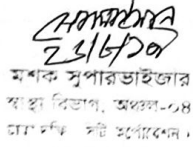 ২১/৮/১৭
মশক সুপারভাইজার
স্বাস্থ্য বিভাগ, অঞ্চল-০৪
ঢাকা দক্ষিণ সিটি কর্পোরেশন।